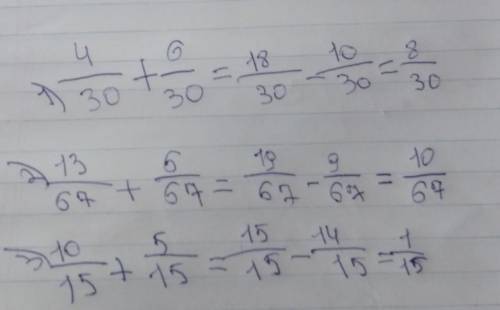 1) 4/30 + 6/30 = 18/30 - 10/30 = 8/30
2) 13/67 + 6/67 = 19/67 - 9/67 = 10/67
3) 10/15 + 5/15 = 15/15 - 14/15 = 1/15